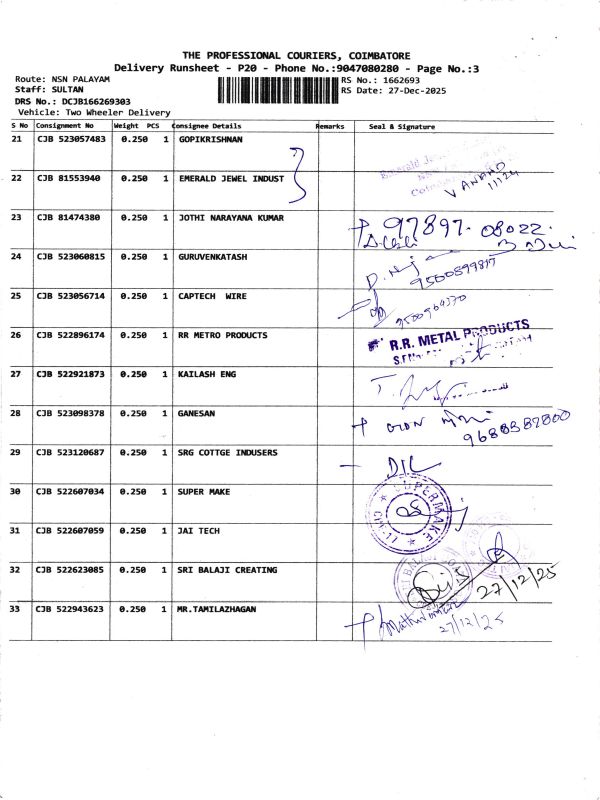 THE PROFESSIONAL COURIERS, COIMBATORE
Delivery Runsheet - P20 - Phone No.:9047080280 - Page No.:3
Route: NSN PALAYAM
RS No.: 1662693
Staff: SULTAN
RS Date: 27-Dec-2025
DRS No.: DCJB166269303
Vehicle: Two Wheeler Delivery
S No Consignment No Weight PCS Consignee Details Remarks Seal & Signature
21 CJB 523057483 0.250 1 GOPIKRISHNAN
22 CJB 81553940 0.250 1 EMERALD JEWEL INDUST
Emerald Jewel
V ANAND
11124
23 CJB 81474380 0.250 1 JOTHI NARAYANA KUMAR
97897-08022
24 CJB 523060815 0.250 1 GURUVENKATASH
9500899817
25 CJB 523056714 0.250 1 CAPTECH WIRE
26 CJB 522896174 0.250 1 RR METRO PRODUCTS
R.R. METAL PRODUCTS
27 CJB 522921873 0.250 1 KAILASH ENG
28 CJB 523098378 0.250 1 GANESAN
29 CJB 523120687 0.250 1 SRG COTTGE INDUSERS
30 CJB 522607034 0.250 1 SUPER MAKE
SUPERMAKE
31 CJB 522607059 0.250 1 JAI TECH
32 CJB 522623085 0.250 1 SRI BALAJI CREATING
27/12/25
33 CJB 522943623 0.250 1 MR.TAMILAZHAGAN
27/12/25